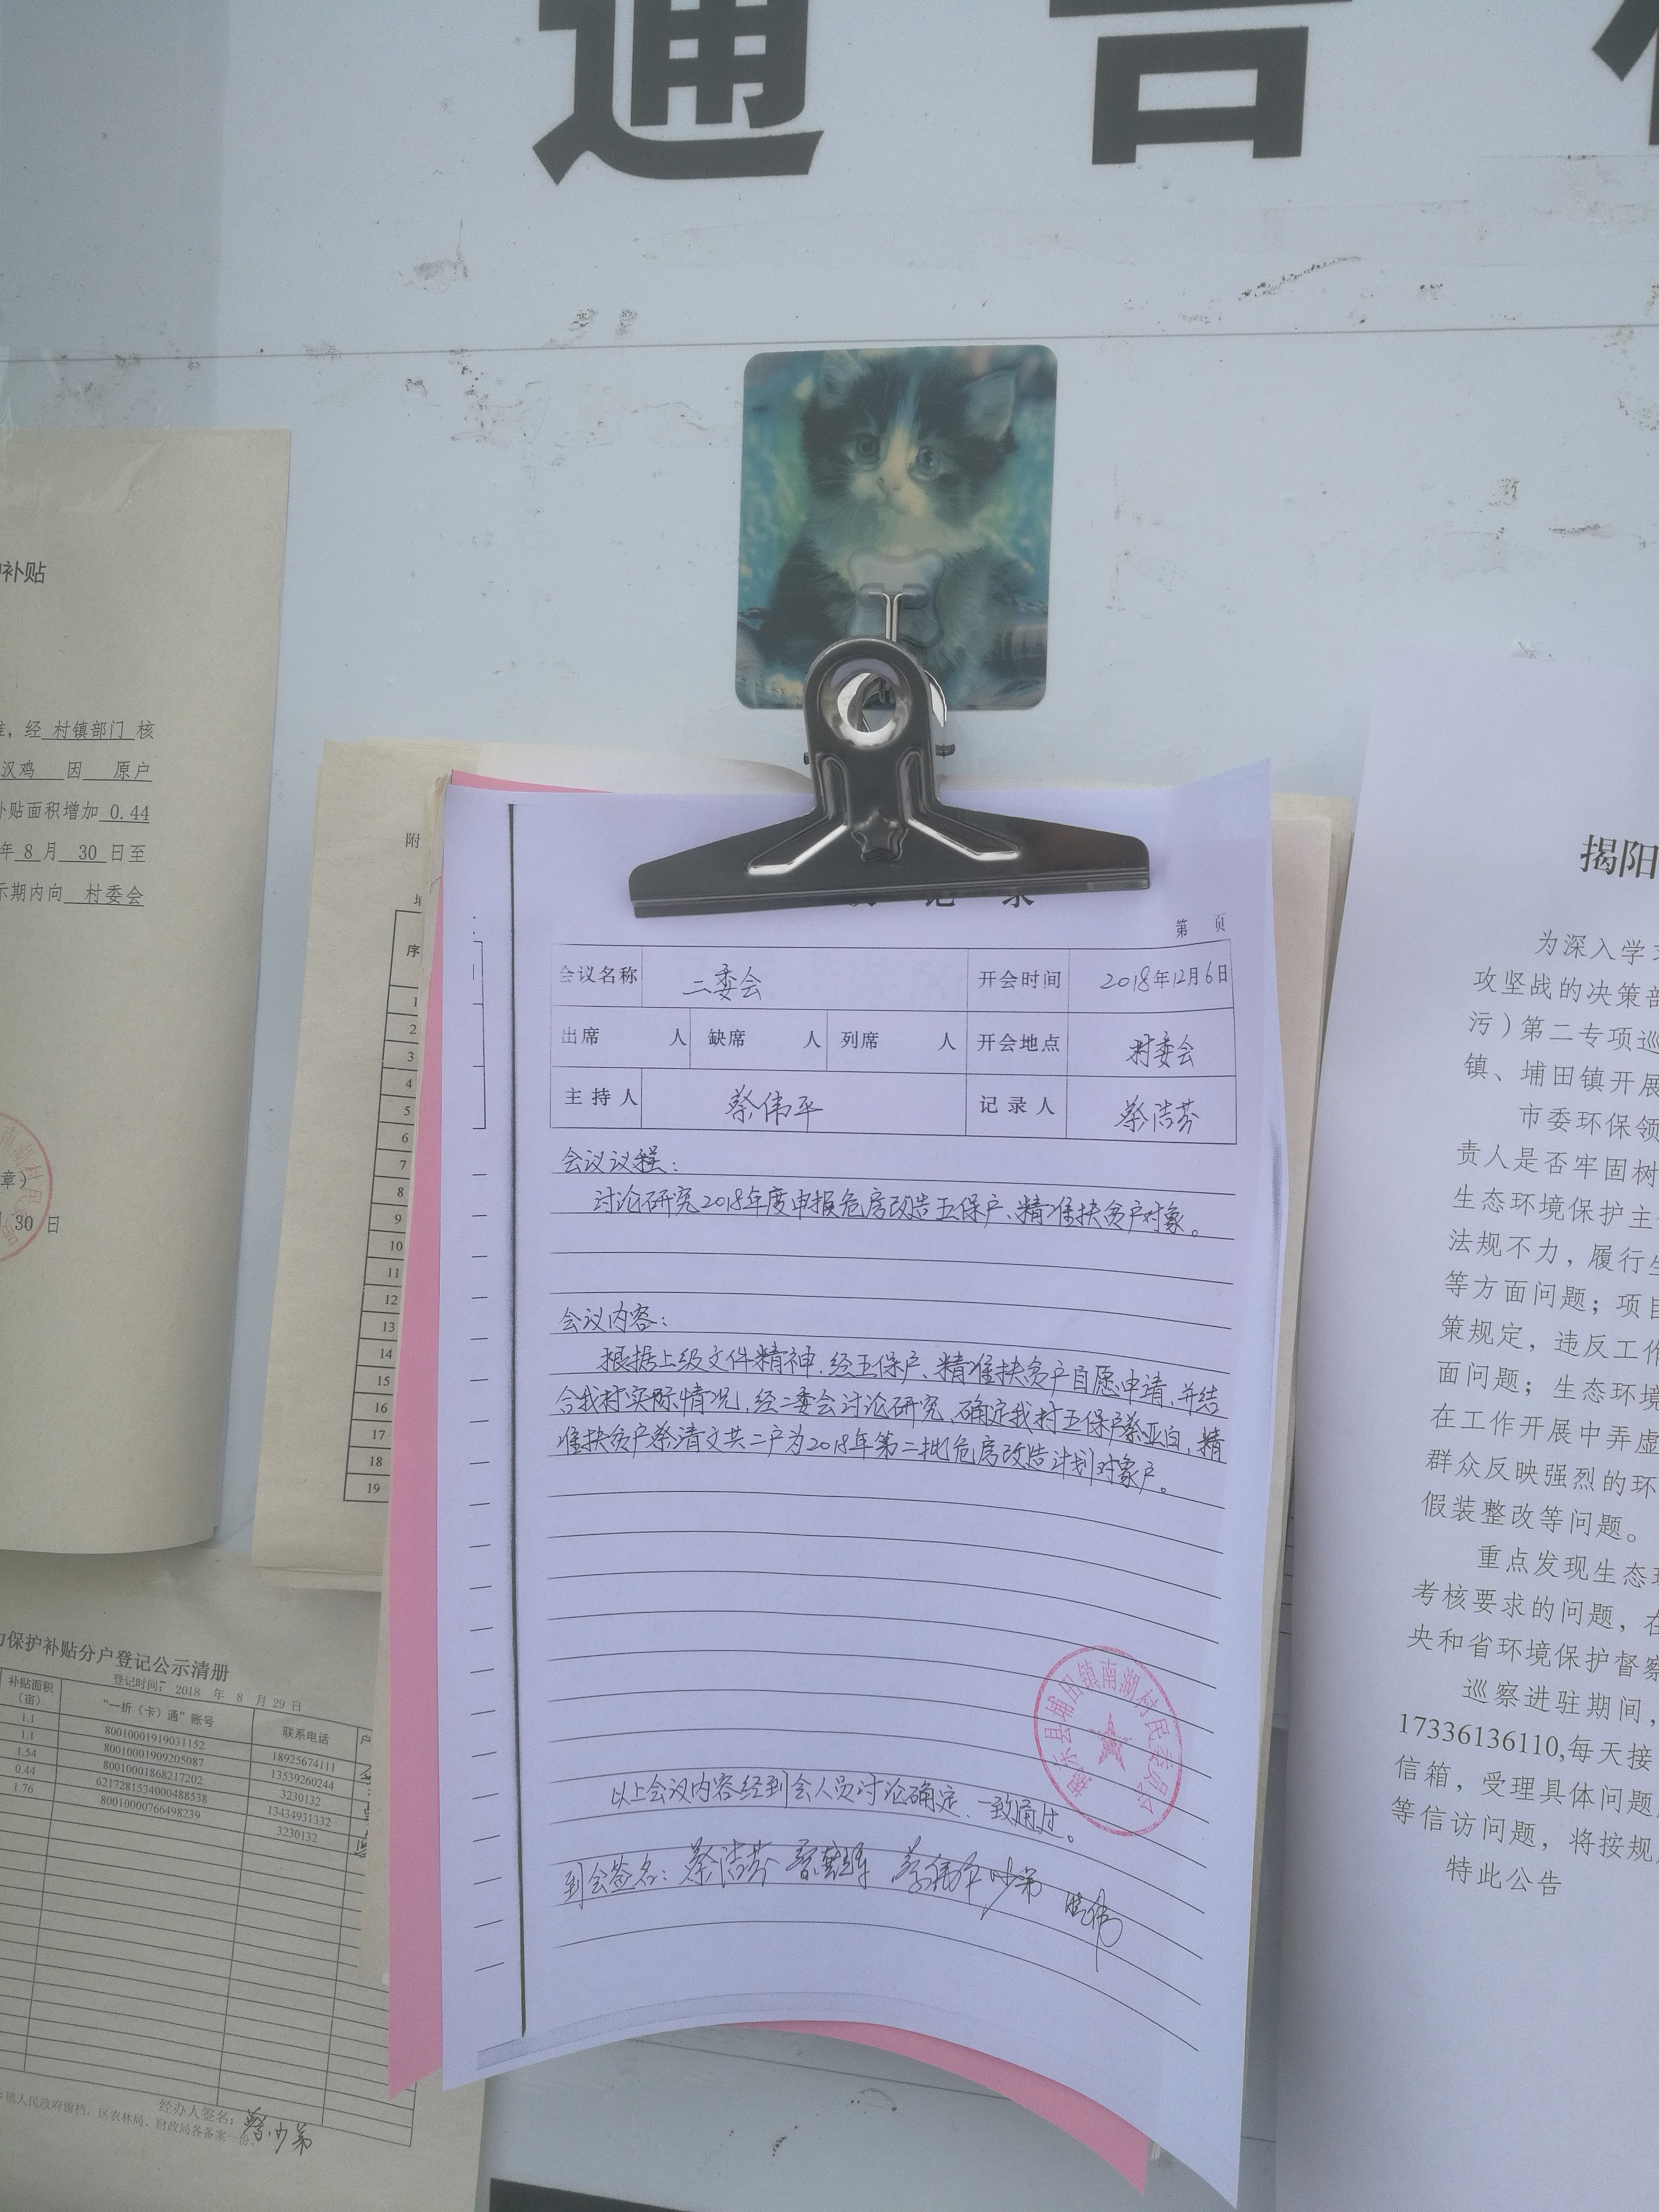 通告
补贴
经 村镇部门 核
汉鸡 因 原户
补贴面积增加 0.44
年 8 月 30 日至
示期内向 村委会
章）
30 日
附
序
1
2
3
4
5
6
7
8
9
10
11
12
13
14
15
16
17
18
19
保护补贴分户登记公示清册
登记时间： 2018 年 8 月 29 日
补贴面积（亩） “一折（卡）通”账号 联系电话 户
1.1 80010001919031152 18925674111
1.1 80010001909205087 13539260244
1.54 80010001868217202 3230132
0.44 6217281534000488538 13434931332
1.76 80010000766498239 3230132
经办人签名：蔡少弟
镇人民政府留档，区农林局、财政局各备案一份。
记 录
第 页
会议名称 二委会 开会时间 2018年12月6日
出席 人 缺席 人 列席 人 开会地点 村委会
主持人 蔡伟平 记录人 蔡洁芬
会议议程：
讨论研究2018年度申报危房改造五保户、精准扶贫户对象。
会议内容：
根据上级文件精神，经五保户、精准扶贫户自愿申请，并结
合我村实际情况，经二委会讨论研究，确定我村五保户蔡亚白，精
准扶贫户蔡清文共二户为2018年第二批危房改造计划对象户。
以上会议内容经到会人员讨论确定，一致通过。
到会签名：蔡洁芬
揭东县埔田镇南湖村民委员会
揭阳
为深入学
攻坚战的决策部
污）第二专项巡
镇、埔田镇开展
市委环保领
责人是否牢固树
生态环境保护主
法规不力，履行
等方面问题；项目
策规定，违反工作
面问题；生态环境
在工作开展中弄虚
群众反映强烈的环
假装整改等问题。
重点发现生态环
考核要求的问题，在
央和省环境保护督察
巡察进驻期间，
17336136110,每天接
信箱，受理具体问题
等信访问题，将按规
特此公告